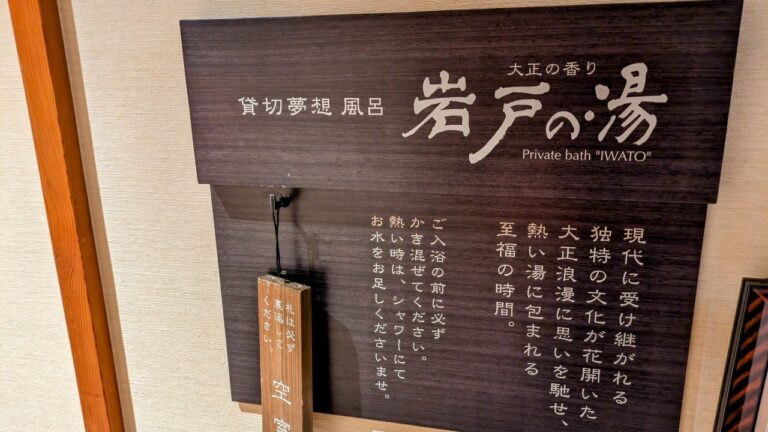 大正の香り
貸切夢想 風呂
岩戸の湯
Private bath "IWATO"
現代に受け継がれる
独特の文化が花開いた
大正浪漫に思いを馳せ、
熱い湯に包まれる
至福の時間。
ご入浴の前に必ず
かき混ぜてください。
熱い時は、シャワーにて
お水をお足しくださいませ。
札は必ず
裏返して
ください。
空室